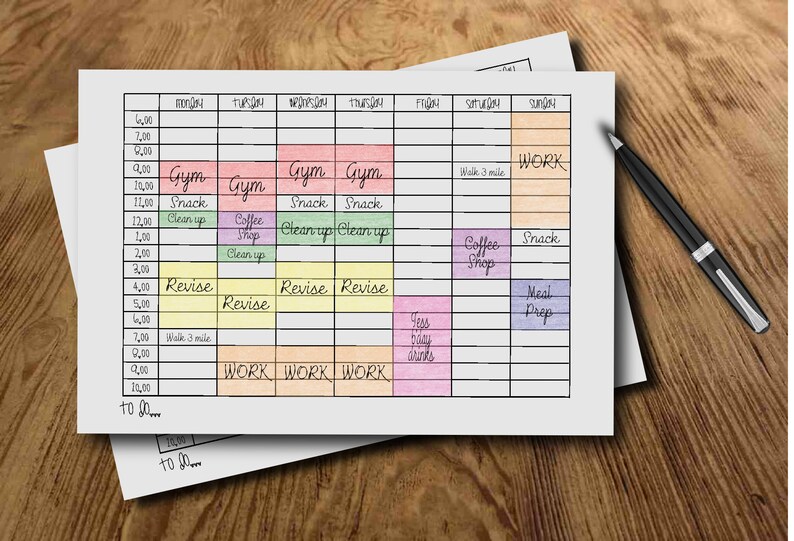 monday tuesday wednesday thursday Friday Saturday Sunday
6.00
7.00
8.00
WORK
9.00 Gym Gym Gym Walk 3 mile
10.00 Gym
11.00 Snack Snack Snack
12.00 Clean up Coffee
Shop
1.00 Clean up Clean up Coffee
Shop
Snack
2.00 Clean up
3.00
4.00 Revise Revise Revise Meal
Prep
5.00 Revise
6.00 Jess
b'day
drinks
7.00 Walk 3 mile
8.00
9.00 WORK WORK WORK
10.00
TO DO...
10.00
TO DO...